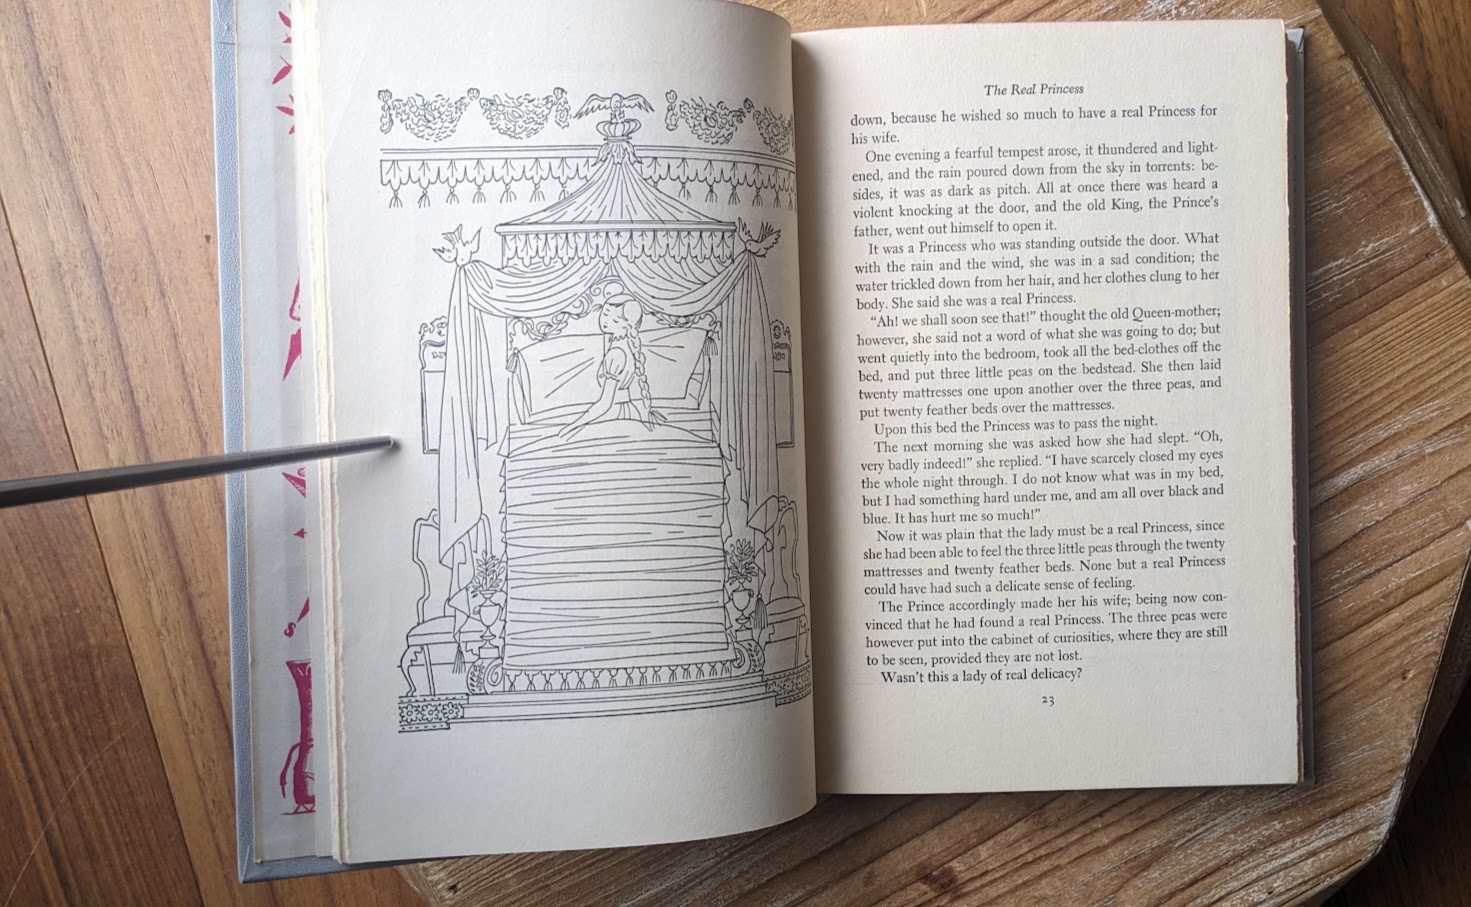 The Real Princess
down, because he wished so much to have a real Princess for
his wife.
One evening a fearful tempest arose, it thundered and light-
ened, and the rain poured down from the sky in torrents: be-
sides, it was as dark as pitch. All at once there was heard a
violent knocking at the door, and the old King, the Prince's
father, went out himself to open it.
It was a Princess who was standing outside the door. What
with the rain and the wind, she was in a sad condition; the
water trickled down from her hair, and her clothes clung to her
body. She said she was a real Princess.
“Ah! we shall soon see that!” thought the old Queen-mother;
however, she said not a word of what she was going to do; but
went quietly into the bedroom, took all the bed-clothes off the
bed, and put three little peas on the bedstead. She then laid
twenty mattresses one upon another over the three peas, and
put twenty feather beds over the mattresses.
Upon this bed the Princess was to pass the night.
The next morning she was asked how she had slept. “Oh,
very badly indeed!” she replied. “I have scarcely closed my eyes
the whole night through. I do not know what was in my bed,
but I had something hard under me, and am all over black and
blue. It has hurt me so much!”
Now it was plain that the lady must be a real Princess, since
she had been able to feel the three little peas through the twenty
mattresses and twenty feather beds. None but a real Princess
could have had such a delicate sense of feeling.
The Prince accordingly made her his wife; being now con-
vinced that he had found a real Princess. The three peas were
however put into the cabinet of curiosities, where they are still
to be seen, provided they are not lost.
Wasn't this a lady of real delicacy?
23